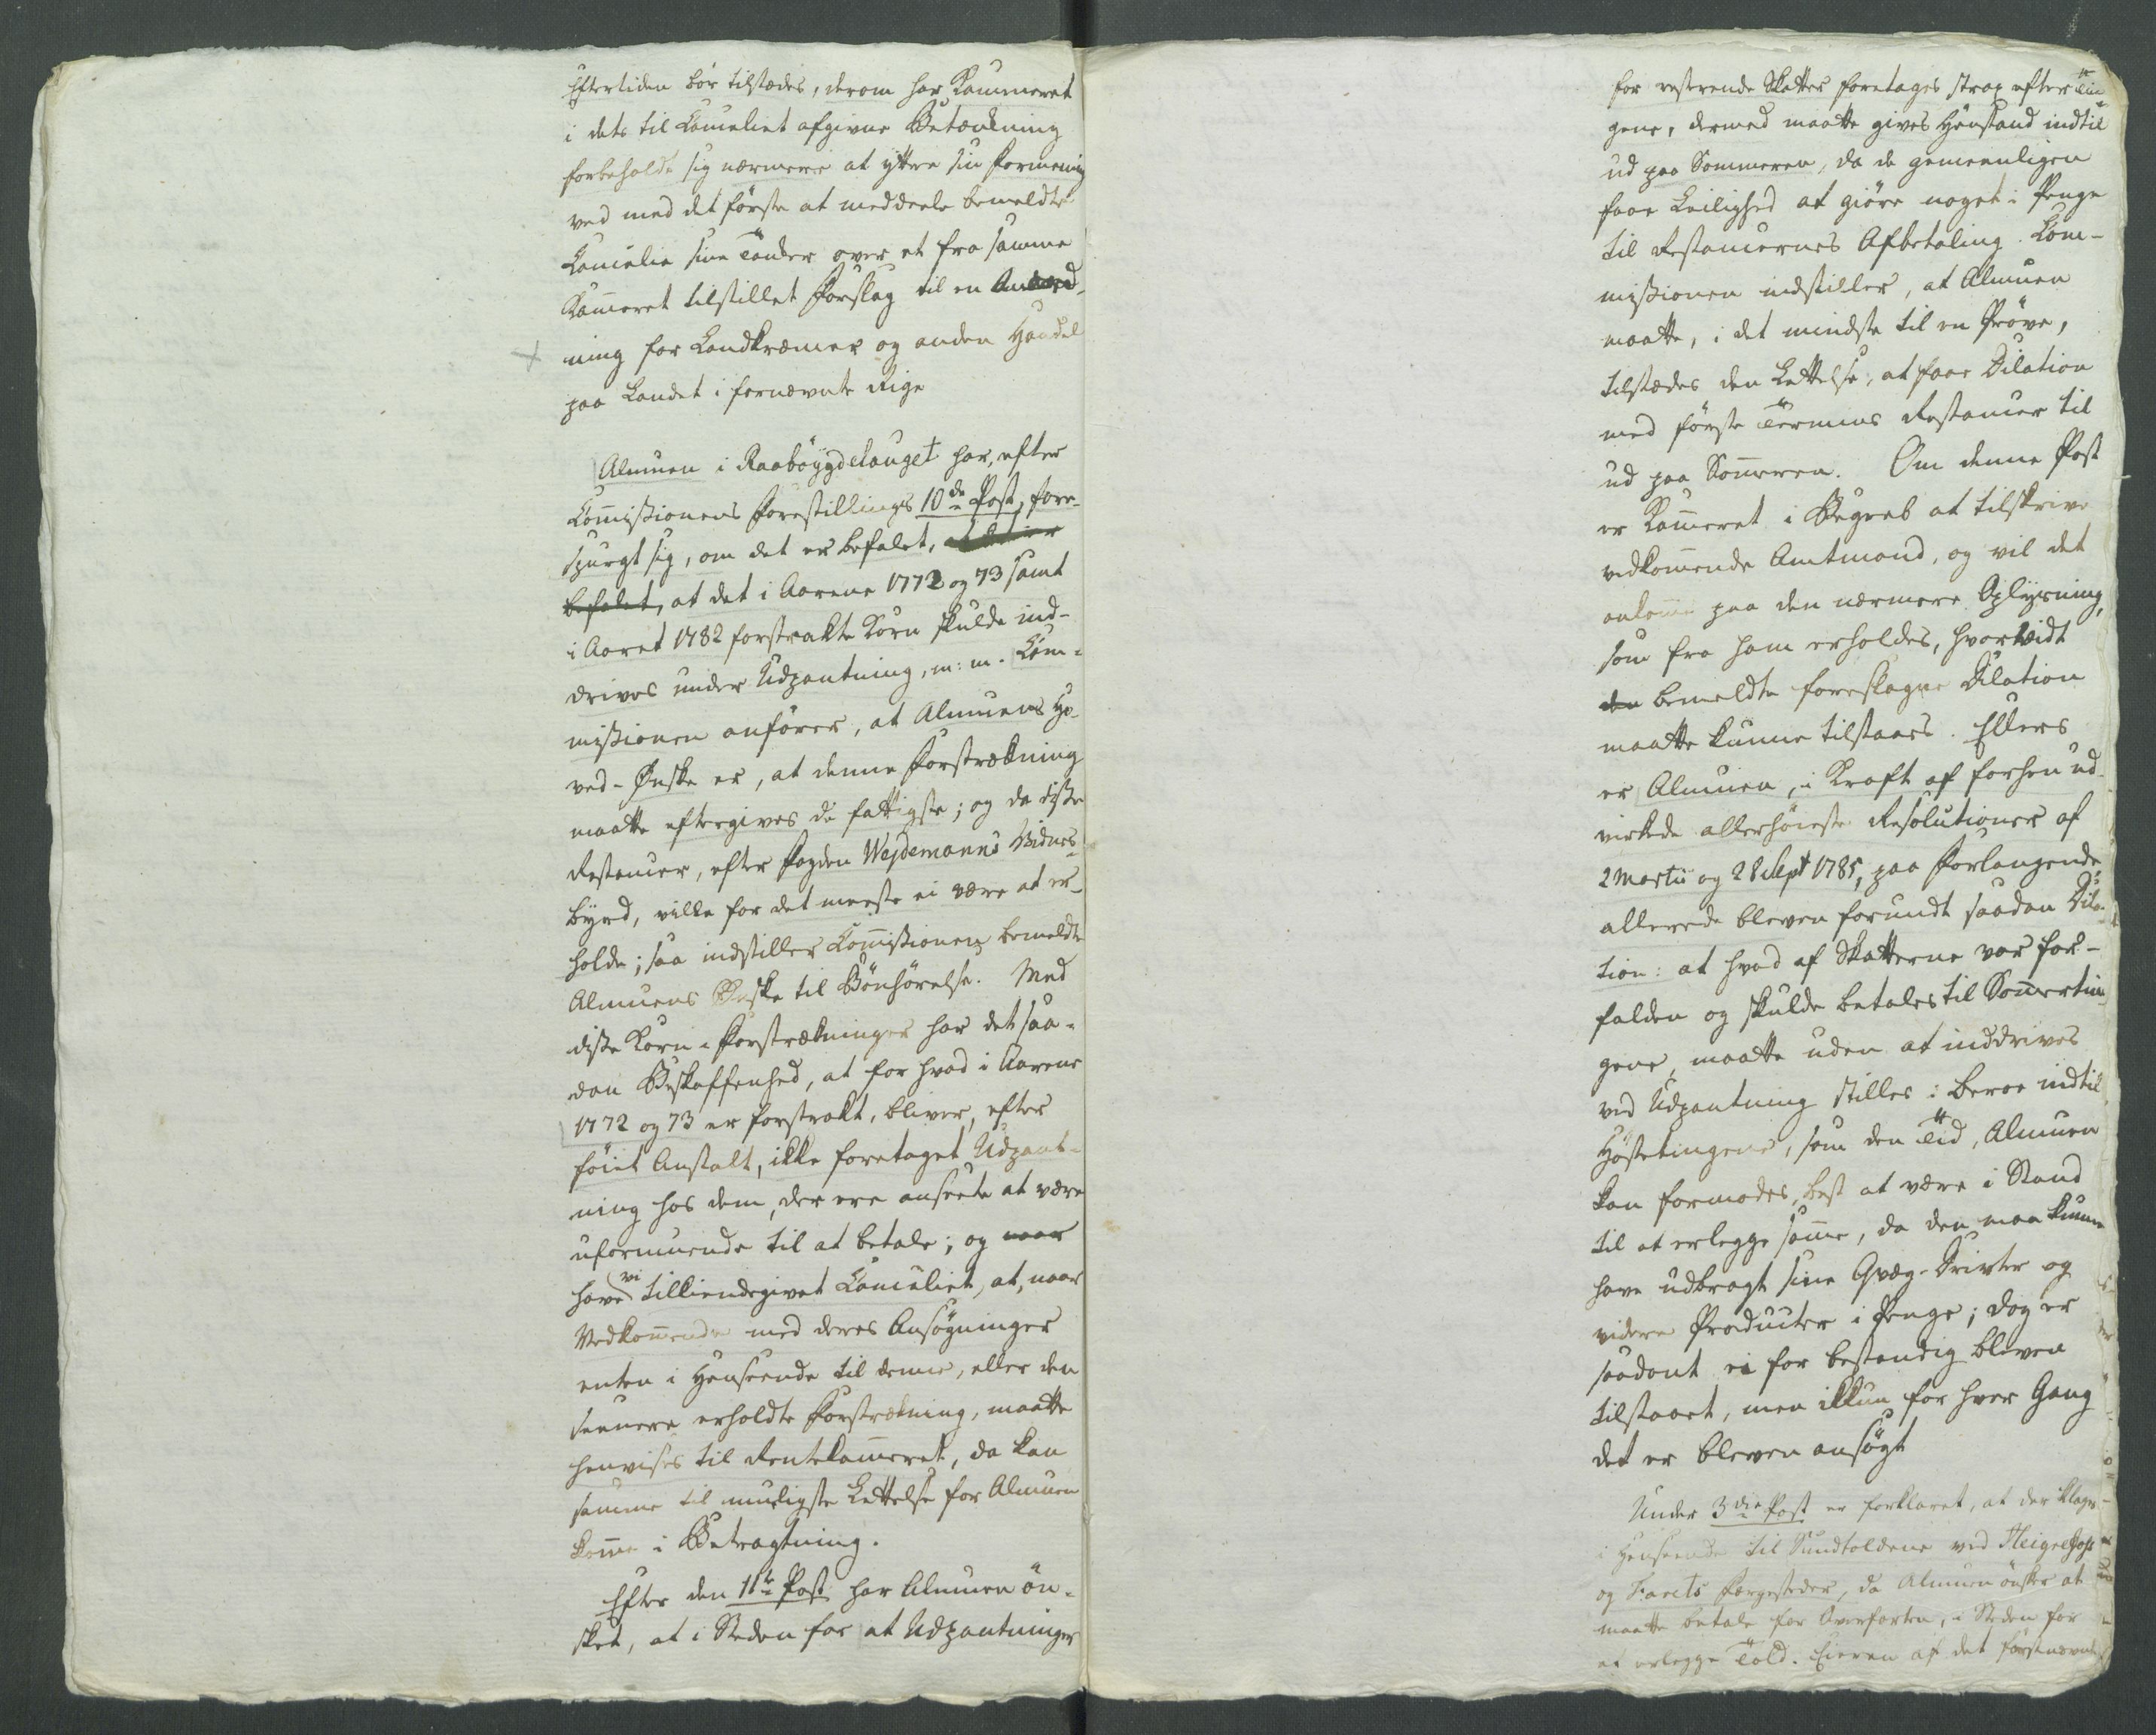 Eftertiden bör tilstædes, derom har Kammeret
i dets til Canceliet afgivne Betænkning
forbeholdt sig nærmere at yttre sin Formening
ved med det förste at meddeele bemeldte
Cancelie sine Tanker over et fra samme
Kam̅eret tilstillet Forslag til en Anord-
ning for Landkræmer og anden Handel
paa Landet i fornævnte Rige
Almuen i Raaböygdelauget har, efter
Com̅issionens Forestillings 10de Post, fore-
spurgt sig, om det er befalet, at det er
befalet, at det i Aarene 1772 og 73 samt
i Aaret 1782 forstrakte Korn skulde ind-
drives under Udpantning, m: m. Com-
missionen anförer, at Almuens Ho-
ved-Ønske er, at denne Forstrækning
maatte eftergives de fattigste; og da disse
Restancer, efter Fogden Wejdemanns Vidnes-
byrd, ville for det meeste ei være at er-
holde; saa indstiller Com̅issionen bemeldte
Almuens Ønske til Bönhörelse. Med
disse Korn-Forstrækninger har det saa-
dan Beskaffenhed, at for hvad i Aarene
1772 og 73 er forstrakt, bliver, efter
föiet Anstalt, ikke foretaget Udpant-
ning hos dem, der ere ansete at være
uformuende til at betale; og naar
have vi tilkiendegivet Canceliet, at, naar
Vedkom̅ende med deres Ansögninger
enten i Henseende til denne, eller den
seenere erholdte Forstrækning, maatte
henvises til Rentekam̅eret, da kan
samme til mueligste Lettelse for Almuen
kom̅e i Betragtning.
Efter den 11te Post har Almuen ön-
sket, at i Steden for at Udpantninger
for resterende Skatter foretages strax efter Tin-
gene, dermed maatte gives Henstand indtil
ud paa Sommeren, da de gemeenligen
faae Leilighed at giöre noget i Penge
til Restancernes Afbetaling. Com-
missionen indstiller, at Almuen
maatte, i det mindste til en Pröve,
tilstædes den Lettelse, at faae Dilation
med förste Termins Restancer til
ud paa Som̅eren. Om denne Post
er Kam̅eret i Begreb at tilskrive
vedkom̅ende Amtmand, og vil det
ankom̅e paa den nærmere Oplysning,
som fra ham erholdes, hvorvidt
den bemeldte foreslagne Dilation
maatte kunne tilstaaes. Ellers
er Almuen, i Kraft af forhen ud-
virkede allerhöieste Resolutioner af
2 Martii og 28 Sept 1785, paa Forlangende
allerede bleven forundt saadan Dila-
tion: at hvad af Skatterne var for-
falden og skulde betales til Som̅ertin-
gene, maatte uden at inddrives
ved Udpantning stilles i beroe indtil
Höstetingene, som den Tid, Almuen
kan formodes best at være i Stand
til at erlegge sam̅e, da den maa kunne
have udbragt sine Qvæg-Drivter og
videre Producter i Penge; dog er
saadant ei for bestandig bleven
tilstaaet, men ikkun for hver Gang
det er bleven ansögt
Under 3die Post er forklaret, at der klages
i Henseende til Sundtoldene ved Heigrefos
og Farets Færgesteder, da Almuen önsker at
maatte betale for Overfarten, i Steden for
at erlegge Told. Eieren af det förstnævnte